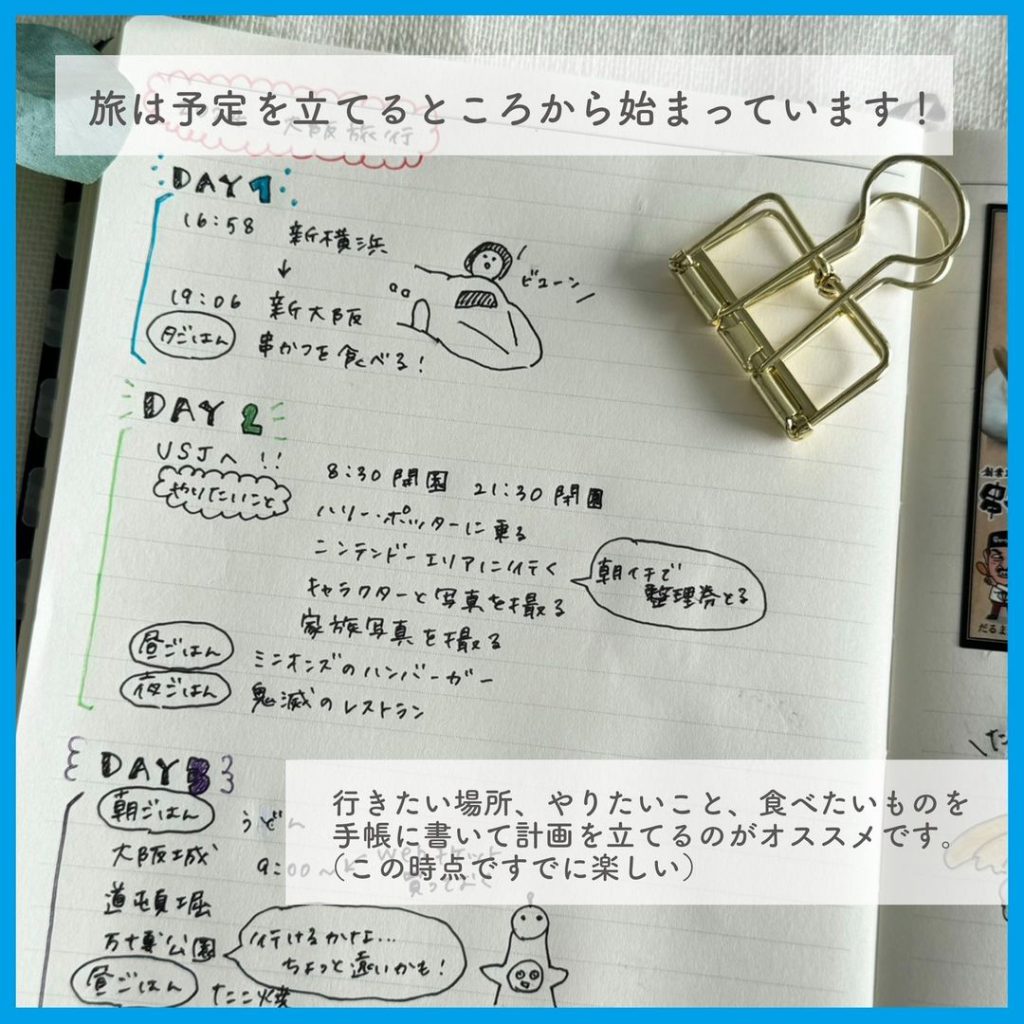 旅は予定を立てるところから始まっています！
大阪旅行
DAY 1
16:58 新横浜
↓
ビューン
19:06 新大阪
夕ごはん 串かつを食べる！
DAY 2
USJへ！！
8:30 開園 21:30 閉園
やりたいこと
ハリー・ポッターに乗る
ニンテンドーエリアに行く
朝イチで
整理券とる
キャラクターと写真を撮る
家族写真を撮る
昼ごはん ミニオンズのハンバーガー
夜ごはん 鬼滅のレストラン
DAY 3
朝ごはん うどん
行きたい場所、やりたいこと、食べたいものを
手帳に書いて計画を立てるのがオススメです。
（この時点ですでに楽しい）
大阪城 9:00～ webチケット
買っておく
道頓堀
万博公園
行けるかなよ...
ちょっと遠いかも！
昼ごはん たこ焼